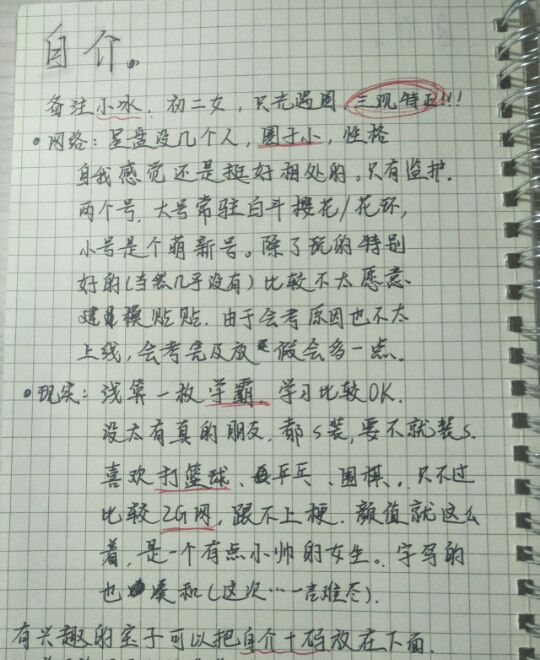 自介。
备注小冰.初二女,只充遇图,三观特正!!!
•网络:星盘没几个人,圈子小,性格
自我感觉还是挺好相处的。只有监护.
两个号,大号常驻白斗樱花/花环,
小号是个萌新号。除了玩的特别
好的(当然几乎没有)比较不太愿意
建模贴贴.由于会考原因也不太
上线,会考完及放假会多一点.
•现实:浅算一枚学霸,学习比较OK.
没太有真的朋友.都s装,要不就装s.
喜欢打篮球、乒乓、围棋。只不过
比较2G网,跟不上梗.颜值就这么
着,是一个有点小帅的女生。字写的
也凑和(这次…一言难尽).
有兴趣的宝子可以把自介+码放在下面.